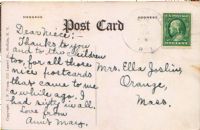 Post Card
Dear niece:-
Thanks to you
and to the children
too, for all those
nice postcards
that came to me
a while ago. I
had sixty in all.
Love from
Aunt Mary.
Mrs. Ella Joslin,
Orange,
Mass.